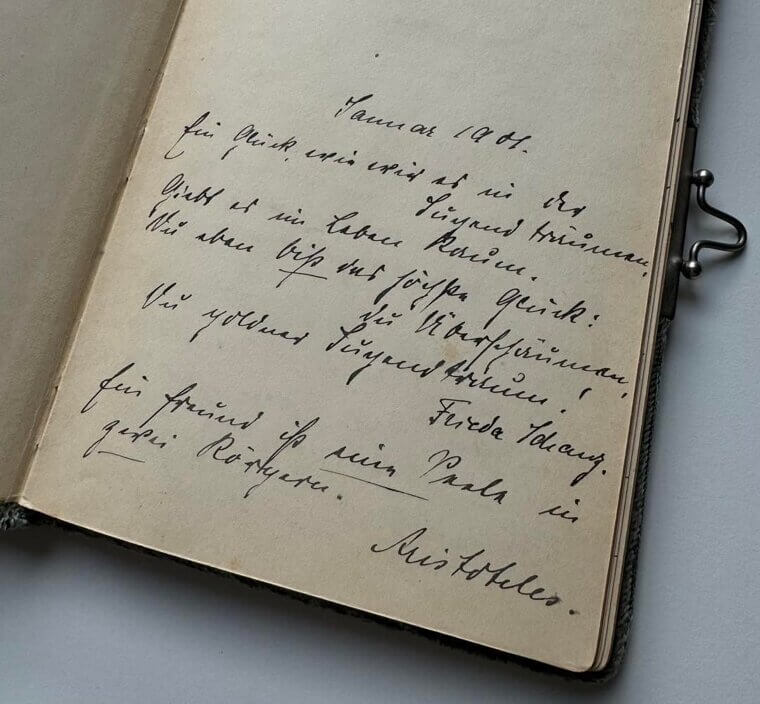 Januar 1901.
Ein Glück, wie wir es in der
Jugend träumen,
Giebt es im Leben kaum.
Du eben biſt das höchſte Glück:
du Überſchäumen,
Du goldner Jugendtraum!
Frieda Schanz.
Ein Freund iſt eine Seele in
zwei Körpern.
Aristoteles.